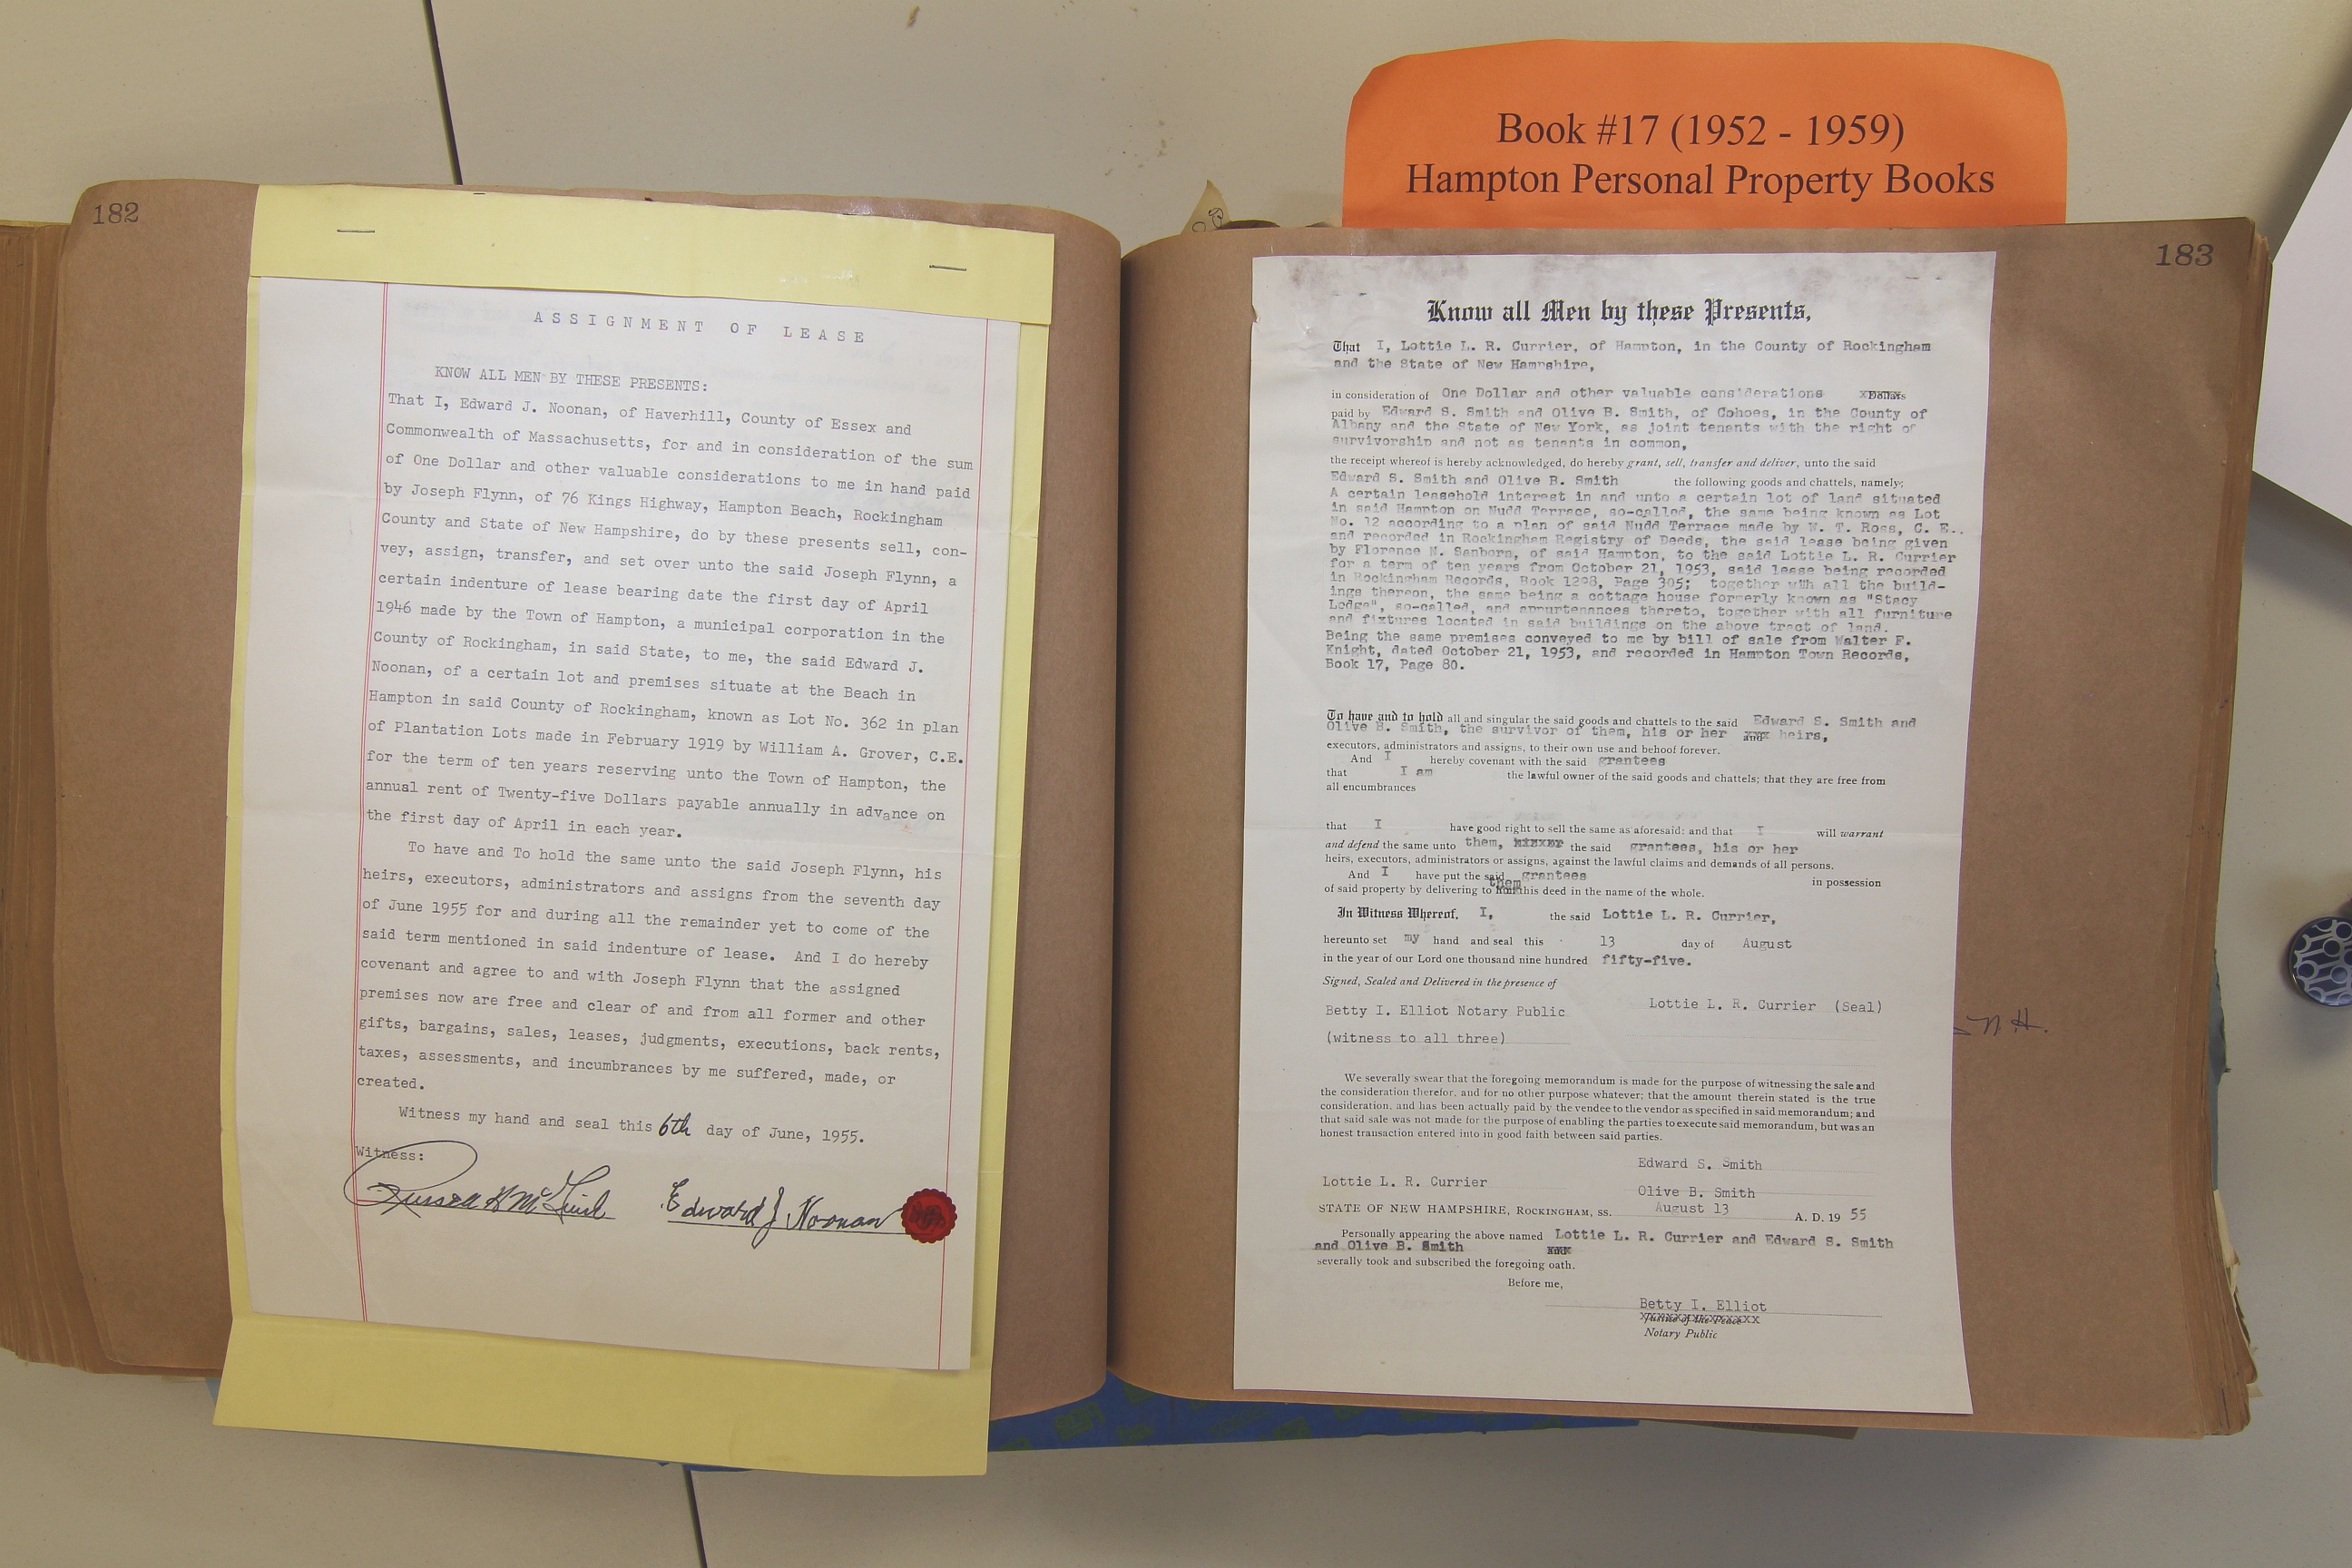 Book #17 (1952 - 1959)
Hampton Personal Property Books
182
ASSIGNMENT OF LEASE
KNOW ALL MEN BY THESE PRESENTS:
That I, Edward J. Noonan, of Haverhill, County of Essex and
Commonwealth of Massachusetts, for and in consideration of the sum
of One Dollar and other valuable considerations to me in hand paid
by Joseph Flynn, of 76 Kings Highway, Hampton Beach, Rockingham
County and State of New Hampshire, do by these presents sell, con-
vey, assign, transfer, and set over unto the said Joseph Flynn, a
certain indenture of lease bearing date the first day of April
1946 made by the Town of Hampton, a municipal corporation in the
County of Rockingham, in said State, to me, the said Edward J.
Noonan, of a certain lot and premises situate at the Beach in
Hampton in said County of Rockingham, known as Lot No. 362 in plan
of Plantation Lots made in February 1919 by William A. Grover, C.E.
for the term of ten years reserving unto the Town of Hampton, the
annual rent of Twenty-five Dollars payable annually in advance on
the first day of April in each year.
To have and To hold the same unto the said Joseph Flynn, his
heirs, executors, administrators and assigns from the seventh day
of June 1955 for and during all the remainder yet to come of the
said term mentioned in said indenture of lease. And I do hereby
covenant and agree to and with Joseph Flynn that the assigned
premises now are free and clear of and from all former and other
gifts, bargains, sales, leases, judgments, executions, back rents,
taxes, assessments, and incumbrances by me suffered, made, or
created.
Witness my hand and seal this 6th day of June, 1955.
Witness:
Russell H Edward J Noonan
183
Know all Men by these Presents,
That I, Lottie L. R. Currier, of Hampton, in the County of Rockingham
and the State of New Hampshire,
in consideration of One Dollar and other valuable considerations xDollars
paid by Edward S. Smith and Olive B. Smith, of Cohoes, in the County of
Albany and the State of New York, as joint tenants with the right of
survivorship and not as tenants in common,
the receipt whereof is hereby acknowledged, do hereby grant, sell, transfer and deliver, unto the said
Edward S. Smith and Olive B. Smith the following goods and chattels, namely:
A certain leasehold interest in and unto a certain lot of land situated
in said Hampton on Nudd Terrace, so-called, the same being known as Lot
No. 12 according to a plan of said Nudd Terrace made by W. T. Ross, C. E..
and recorded in Rockingham Registry of Deeds, the said lease being given
by Florence N. Sanborn, of said Hampton, to the said Lottie L. R. Currier
for a term of ten years from October 21, 1953, said lease being recorded
in Rockingham Records, Book 1298, Page 305; together with all the build-
ings thereon, the same being a cottage house formerly known as "Stacy
Lodge", so-called, and appurtenances thereto, together with all furniture
and fixtures located in said buildings on the above tract of land.
Being the same premises conveyed to me by bill of sale from Walter F.
Knight, dated October 21, 1953, and recorded in Hampton Town Records,
Book 17, Page 80.
To have and to hold all and singular the said goods and chattels to the said Edward S. Smith and
Olive B. Smith, the survivor of them, his or her and heirs,
executors, administrators and assigns, to their own use and behoof forever.
And I hereby covenant with the said grantees
that I am the lawful owner of the said goods and chattels; that they are free from
all encumbrances
that I have good right to sell the same as aforesaid: and that I will warrant
and defend the same unto them, the said grantees, his or her
heirs, executors, administrators or assigns, against the lawful claims and demands of all persons.
And I have put the said grantees in possession
of said property by delivering to them this deed in the name of the whole.
In Witness Whereof, I, the said Lottie L. R. Currier,
hereunto set my hand and seal this 13 day of August
in the year of our Lord one thousand nine hundred fifty-five.
Signed, Sealed and Delivered in the presence of
Betty I. Elliot Notary Public Lottie L. R. Currier (Seal)
(witness to all three)
N.H.
We severally swear that the foregoing memorandum is made for the purpose of witnessing the sale and
the consideration therefor, and for no other purpose whatever; that the amount therein stated is the true
consideration, and has been actually paid by the vendee to the vendor as specified in said memorandum; and
that said sale was not made for the purpose of enabling the parties to execute said memorandum, but was an
honest transaction entered into in good faith between said parties.
Edward S. Smith
Lottie L. R. Currier
Olive B. Smith
STATE OF NEW HAMPSHIRE, ROCKINGHAM, SS. August 13 A. D. 19 55
Personally appearing the above named Lottie L. R. Currier and Edward S. Smith
and Olive B. Smith
severally took and subscribed the foregoing oath.
Before me,
Betty I. Elliot
Justice of the Peace
Notary Public